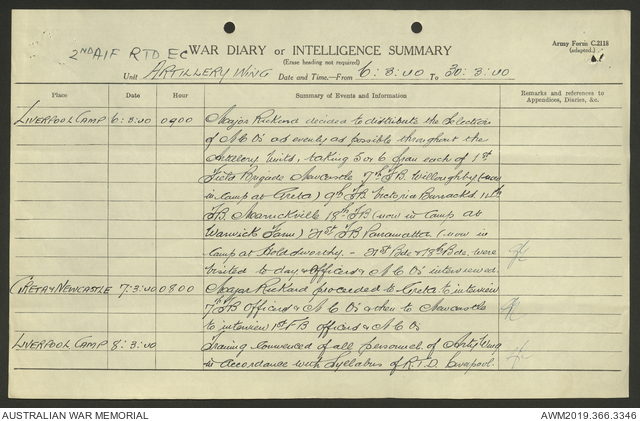 Army Form C.2118
(adapted.)
2ND AIF RTD EC WAR DIARY or INTELLIGENCE SUMMARY
(Erase heading not required)
Unit ARTILLERY WING Date and Time—From 6:3:40 To 30:3:40
Place Date Hour Summary of Events and Information Remarks and references to Appendices, Diaries, &c.
LIVERPOOL CAMP 6:3:40 0900 Major Rickard decided to distribute the selection
of N.C.O's as evenly as possible throughout the
Artillery Units, taking 5 or 6 from each of 1st
Field Brigade Newcastle 7th F.B. Willoughby (now
in Camp at Greta) 9th F.B. Victoria Barracks. 14th
F.B. Marrickville 18th F.B (now in Camp at
Warwick Farm) 21st F.B Parramatta (now in
Camp at Holdsworthy. - 21st Bde & 18th Bde. were
visited to day & Officers & N.C.O's interviewed.
GRETA & NEWCASTLE 7:3:40 0800 Major Rickard proceeded to Greta to interview
7th F.B Officers & N.C.O's & then to Newcastle
to interview 1st F.B Officers & N.C.O's
LIVERPOOL CAMP 8:3:40 Training commenced of all personnel of Arty Wing
in accordance with Syllabus of R.T.D. Liverpool.
AUSTRALIAN WAR MEMORIAL AWM2019.366.3346